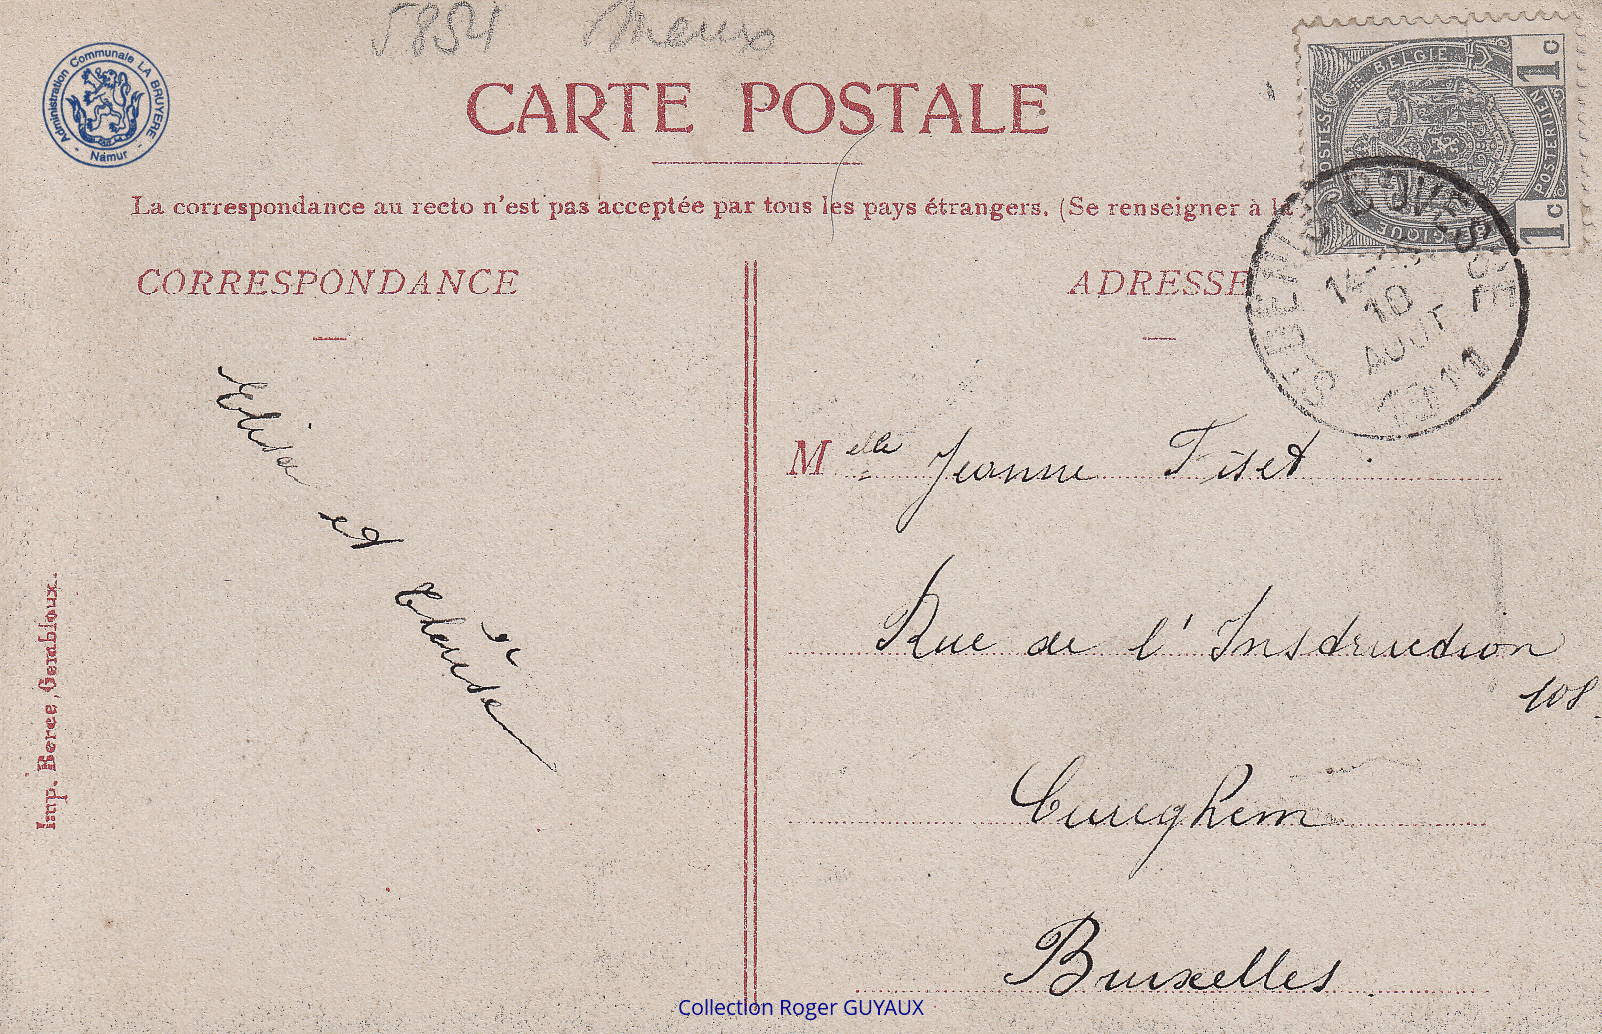 5851 Meux
Administration Communale LA BRUYERE - Namur -
CARTE POSTALE
La correspondance au recto n'est pas acceptée par tous les pays étrangers. (Se renseigner à la
CORRESPONDANCE
ADRESSE
BELGIE
POSTES
POSTERIJEN
BELGIQUE
1c
1c
ST DENIS-BOVESSE
10
AOUT
1911
Elisa et
Melle Jeanne Tiset
Rue de l'Instruction
108.
Cureghem
Bruxelles
Imp. Berce, Gembloux.
Collection Roger GUYAUX